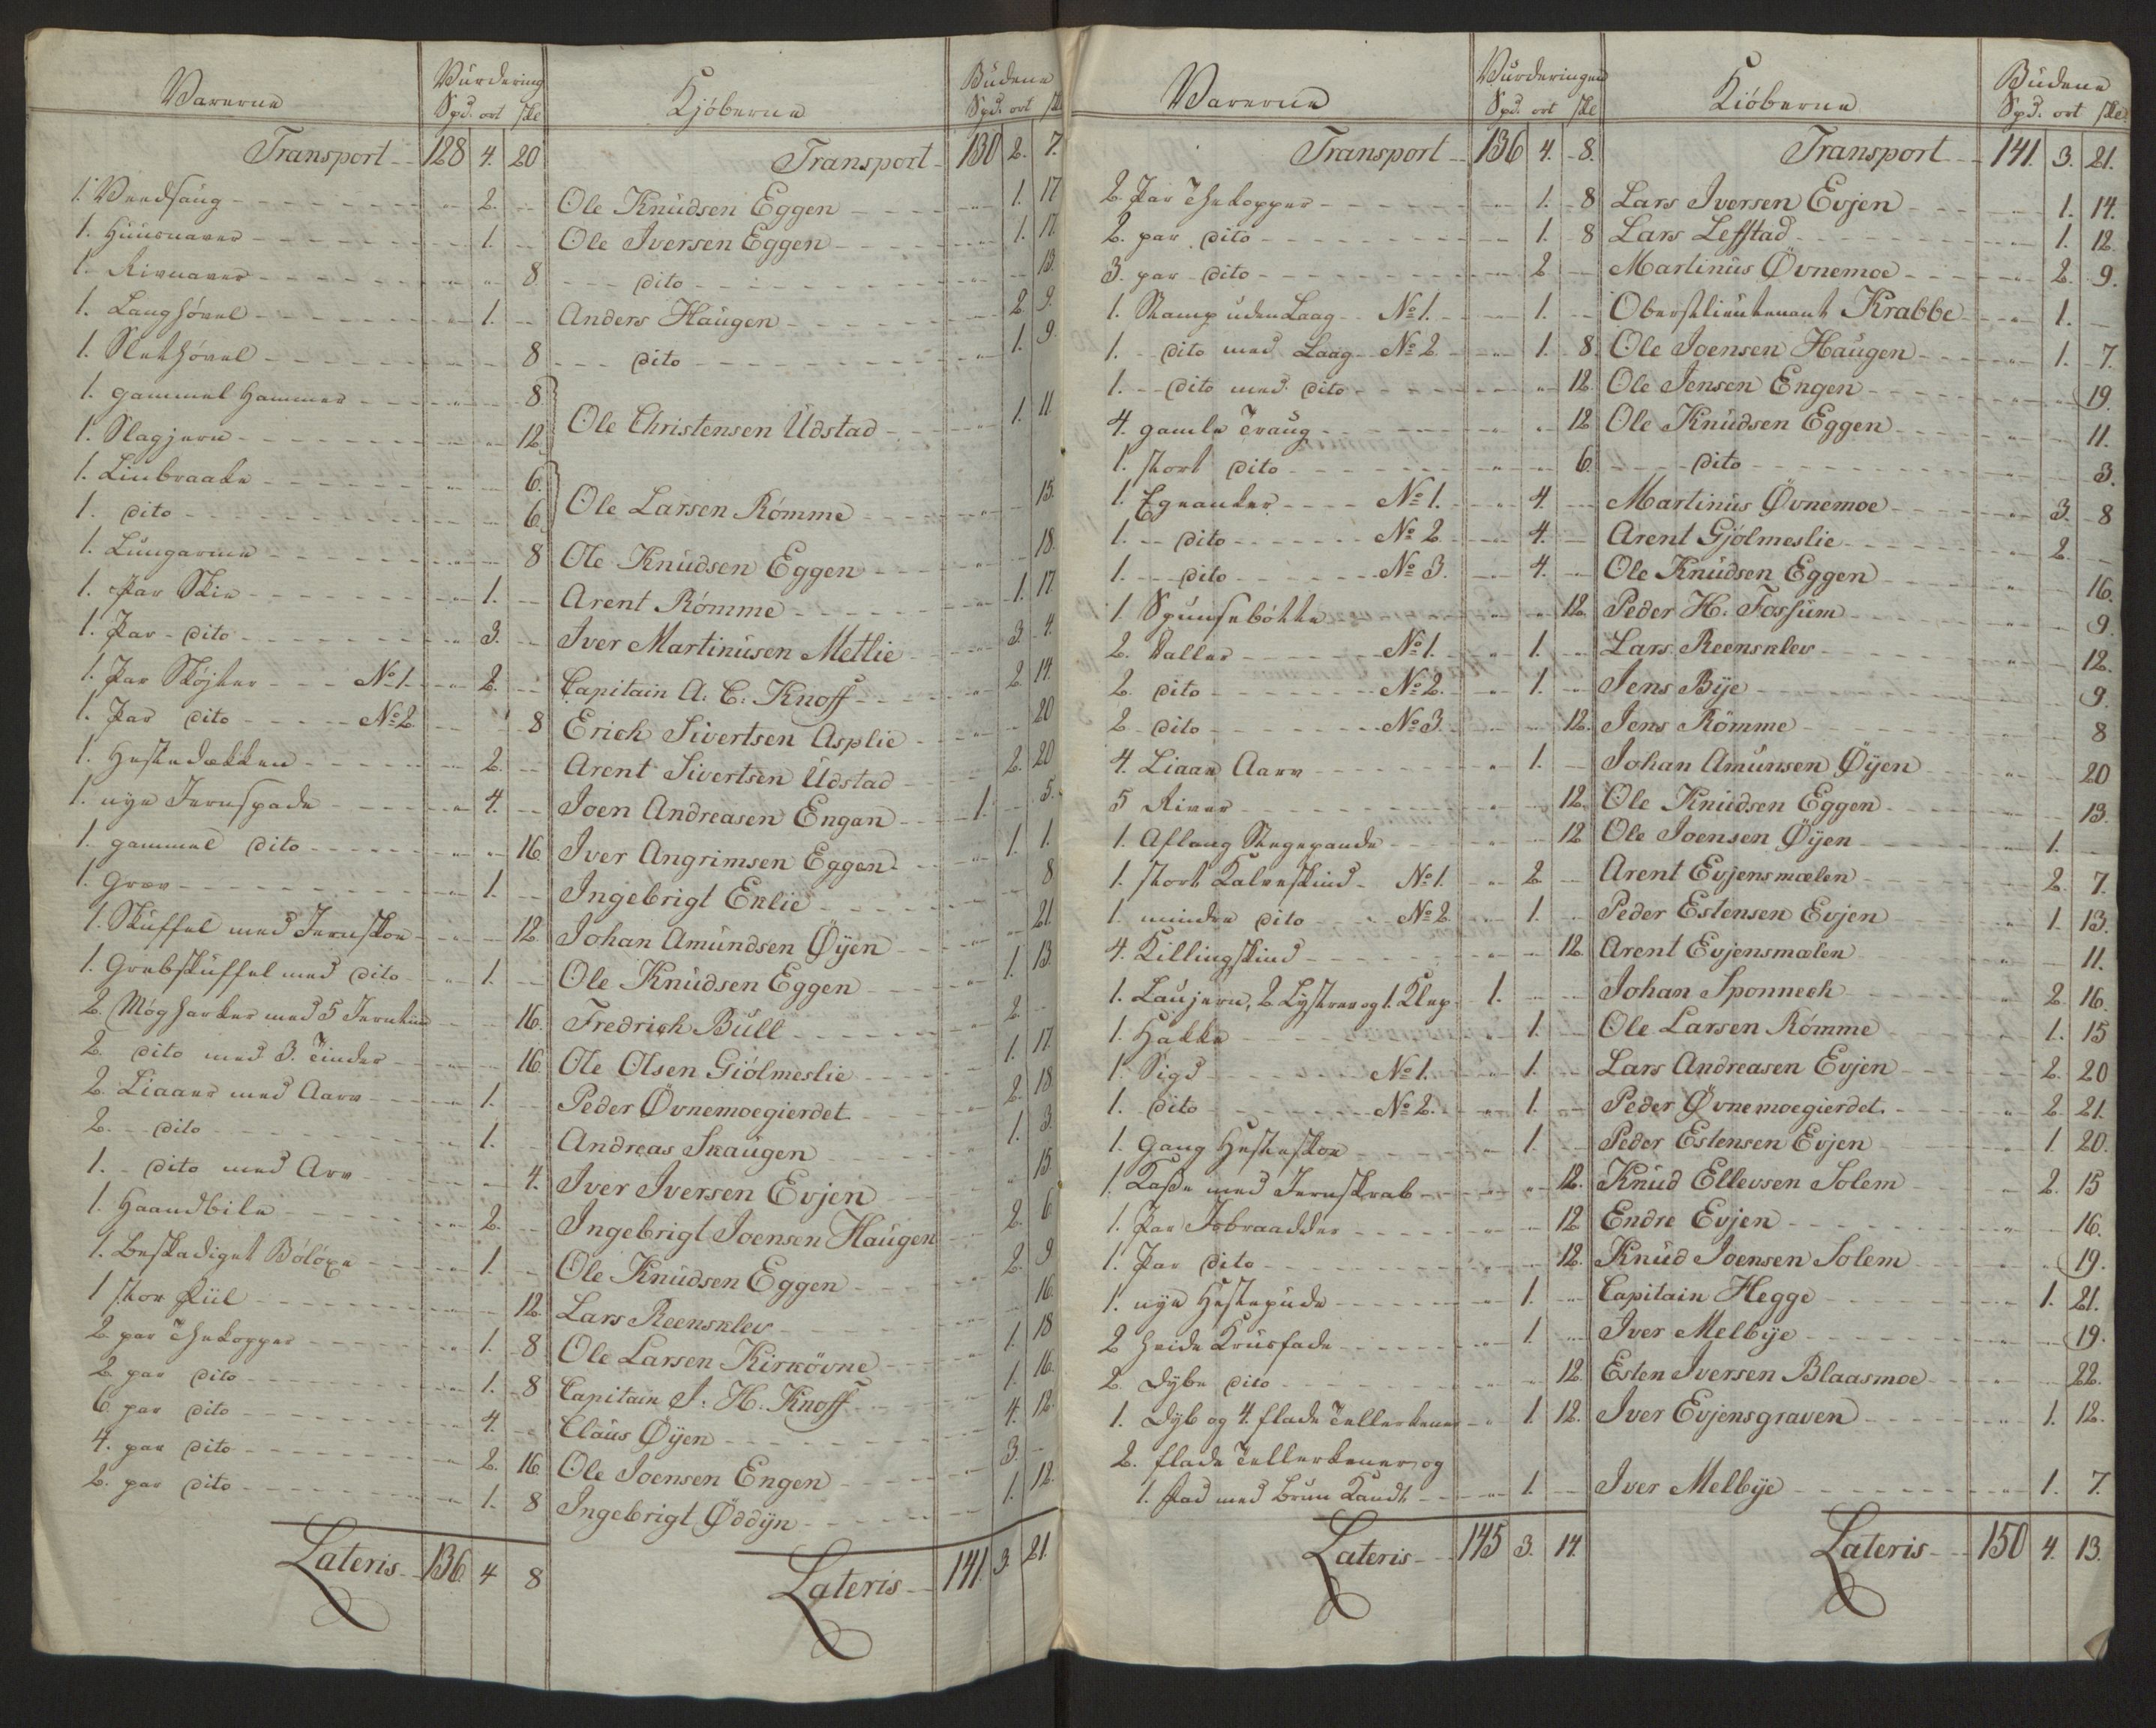 Varerne Vurdering Kjöberne Budene
Spd. ort skl Spd. ort skl
Transport 128 4. 20 Transport 130 2. 7.
1. Vendsaug " 2. " Ole Knudsen Eggen " 1. 17
1. Huusnaver " 1. " Ole Iversen Eggen " 1. 17.
1. Rivnaver " " 8 dito " " 13.
1. Langhövel " 1. " Anders Haugen " 2 9.
1. Slethövel " " 8 dito " 1. 9.
1. gammel Hammer " " 8.
1. Slagjern " " 12. Ole Christensen Udstad " 1. 11
1. Linbraake " " 6.
1. dito " " 6. Ole Larsen Römme " " 15.
1. Lungarine " " 8 Ole Knudsen Eggen " " 18.
1. Par Skie " 1. " Arent Römme " 1. 17.
1. Par dito " 3. " Iver Martinusen Metlie " 3 4.
1. Par Sköjter No 1. " 2. " Capitain A. C. Knoff " 2. 14.
1. Par dito No 2. " " 8 Erich Sivertsen Asplie " " 20
1. Hestedækken " 2. " Arent Sivertsen Udstad " 2. 20
1. nye Jernspade " 4. " Joen Andreasen Engan 1. " 5.
1. gammel dito " " 16 Iver Angrimsen Eggen " 1. 1.
1. Grev " 1. " Ingebrigt Enlie " " 8
1. Skuffel med Jernskoe " " 12. Johan Amundsen Øyen " " 21.
1. Grebskuffel med dito " 1. " Ole Knudsen Eggen " 1. 13.
2. Møgharker med 5 Jerntind " " 16. Fredrich Bull " 2 "
2. dito med 3. Tinder " " 16 Ole Olsen Giölmeslie " 1. 17.
2. Liaaer med Aarv " 1. " Peder Øvnemoegierdet " 2. 18
2. dito " 1. " Andreas Skaugen " 1. 3.
1. dito med Arv " " 4. Iver Iversen Evjen " " 15
1. Haandbile " 2. " Ingebrigt Joensen Haugen " 2. 6
1. beskadiget Bölöxe " 1. " Ole Knudsen Eggen " 2. 9
1 stor Fiil " " 12. Lars Reensklev " " 16.
2 par Thekopper " 1. 8 Ole Larsen Kirkövne " 1. 18
2. par dito " 1. 8 Capitain J. H. Knoff " 1. 16.
6. par dito " 4. " Claus Øyen " 4. 12.
4. par dito " 2. 16 Ole Joensen Engen " 3. "
2. par dito " 1. 8 Ingebrigt Øddyn " 1. 12.
Lateris 136. 4 8 Lateris 141. 3. 21.
Varerne Vurderingen Kiöberne Budene
Spd. ort skl Spd. ort skl
Transport 136 4. 8. Transport 141. 3. 21.
2. Par Thekopper " 1. 8 Lars Iversen Evjen " 1. 14.
2. par dito " 1. 8 Lars Lefstad " 1. 12.
3. par dito " 2 " Martinus Øvnemoe " 2. 9.
1. Stamp uden Laag No 1. " 1. " Oberstlieutenant Krabbe " 1. "
1. dito med Laag No 2. " 1. 8. Ole Joensen Haugen " 1. 7.
1. dito med dito " " 12. Ole Jensen Engen " " 19.
4. gamle Traug " " 12 Ole Knudsen Eggen " " 11.
1. stort dito " " 6. dito " " 3.
1. Egeanker No 1. " 4. " Martinus Øvnemoe " 3. 8
1. dito No 2. " 4. " Arent Gjölmeslie " 2. "
1. dito No 3. " 4. " Ole Knudsen Eggen " " 16.
1 Spunsebötte " " 12. Peder H. Fossum " " 9.
2. Daller No 1. " 1. " Lars Reensklev " " 12.
2. dito No 2. " 1. " Jens Bye " " 9.
2 dito No 3. " " 12. Jens Römme " " 8
4. Liaae Aarv " 1. " Johan Amunsen Øyen " " 20
5 River " " 12. Ole Knudsen Eggen " " 13.
1. Aflang Stegepande " " 12 Ole Joensen Øyen " 1. "
1. stort Kalveskind No 1. " 2 " Arent Evjensmælen " 2. 7.
1. mindre dito No 2. " 1. " Peder Estensen Evjen " 1. 13.
4. Killingskind " " 12. Arent Evjensmælen " " 11.
1. Laujern, 2 Lystrer og 1. Klep 1. " " Johan Sponneck " 2. 16.
1. Hakke " 1. " Ole Larsen Römme " 1. 15
1. Sigd No 1. " 1. " Lars Andreasen Evjen " 2. 20
1. dito No 2. " 1. " Peder Øvnemoegierdet " 2. 21.
1. Gang Hesteskoe " 1. " Peder Estensen Evjen " 1. 20.
1. Kasse med Jernskrab " " 12. Knud Ellevsen Solem " 2. 15
1. Par Isbraadder " " 12 Endre Evjen " " 16.
1. Par dito " " 12. Knud Joensen Solem " " 19.
1. nye Hestepude " 1. " Capitain Hegge " 1. 21.
2 hvide Kruusfade " 1 " Iver Melbye " " 19.
2. dybe dito " " 12. Esten Iversen Blaasmoe " " 22.
1. dyb og 4. flade Tellerkener " 1. 12. Iver Evjensgraven " 1. 12.
2. flade Tellerkener og
1. Fad med bruun Kandt " 1. " Iver Melbye " 1. 7.
Lateris 145 3. 14. Lateris 150 4. 13.